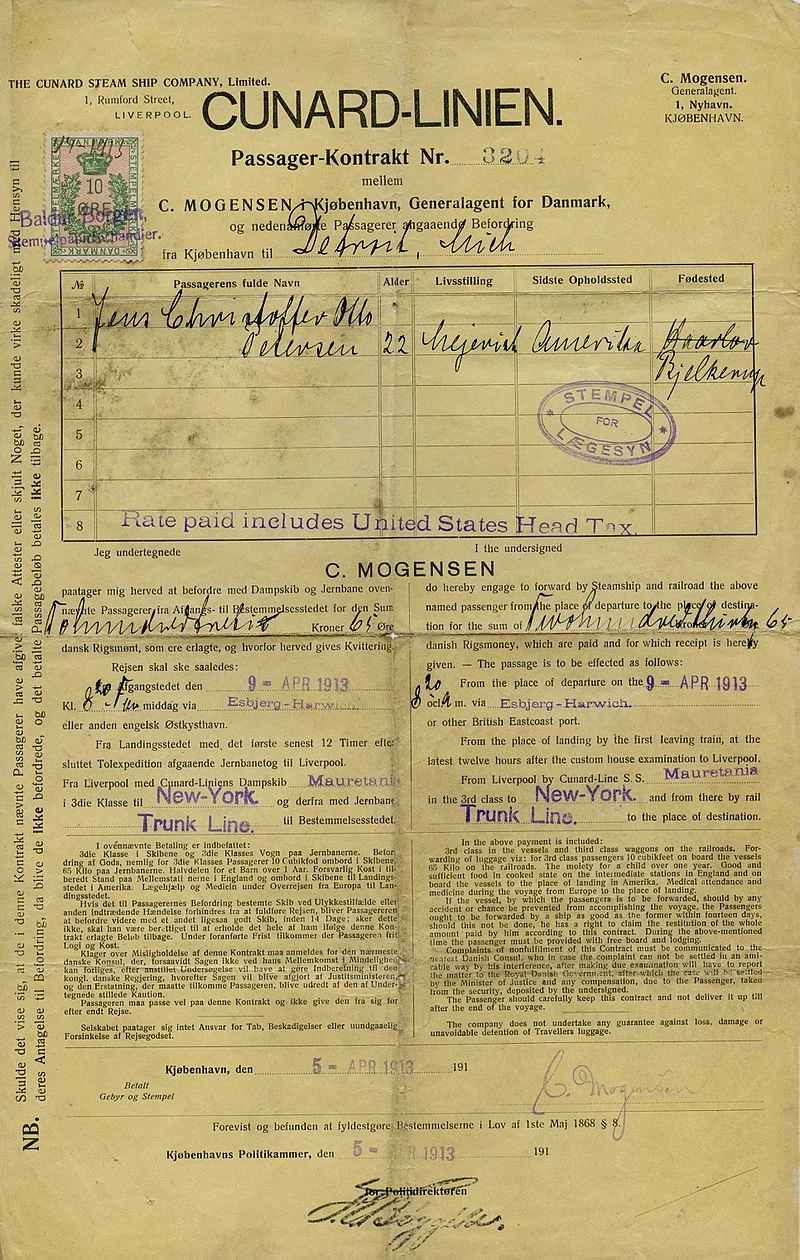 THE CUNARD STEAM SHIP COMPANY, Limited.
1, Rumford Street,
LIVERPOOL.
CUNARD-LINIEN.
C. Mogensen.
Generalagent.
1, Nyhavn.
KJØBENHAVN.
1913
10
ØRE
DANMARK
Passager-Kontrakt Nr. 3204
mellem
C. MOGENSEN i Kjøbenhavn, Generalagent for Danmark,
og nedennævnte Passagerer angaaende Befordring
fra Kjøbenhavn til Detroit, Mich
№ Passagerens fulde Navn Alder Livsstilling Sidste Opholdssted Fødested
1 Jens Christoffer Otto
2 Petersen 22 Mejerist Amerika Haarlev
3 Bjelkerup
4
5
6
7
8
STEMPEL
FOR
LÆGESYN
Rate paid includes United States Head Tax.
Jeg undertegnede
I the undersigned
C. MOGENSEN
paatager mig herved at befordre med Dampskib og Jernbane oven-
nævnte Passagerer fra Afgangs- til Bestemmelsesstedet for den Sum
Tohundredtretio Kroner 65 Øre
dansk Rigsmønt, som ere erlagte, og hvorfor herved gives Kvittering.
Rejsen skal ske saaledes:
Afgangstedet den 9 - APR 1913
Kl. 8 20 middag via Esbjerg-Harwich.
eller anden engelsk Østkysthavn.
Fra Landingsstedet med det første senest 12 Timer efter
sluttet Tolexpedition afgaaende Jernbanetog til Liverpool.
Fra Liverpool med Cunard-Liniens Dampskib Mauretania
i 3die Klasse til New-York. og derfra med Jernbane
Trunk Line. til Bestemmelsesstedet.
I ovennævnte Betaling er indbefattet:
3die Klasse i Skibene og 3die Klasses Vogn paa Jernbanerne. Befor-
dring af Gods, nemlig for 3die Klasses Passagerer 10 Cubikfod ombord i Skibene,
65 Kilo paa Jernbanerne. Halvdelen for et Barn over 1 Aar. Forsvarlig Kost i til-
beredt Stand paa Mellemstationerne i England og ombord i Skibene til Landings-
stedet i Amerika. Lægehjælp og Medicin under Overrejsen fra Europa til Lan-
dingsstedet.
Hvis det til Passagerernes Befordring bestemte Skib ved Ulykkestilfælde eller
anden indtrædende Hændelse forhindres fra at fuldføre Rejsen, bliver Passageren
at befordre videre med et andet ligesaa godt Skib, inden 14 Dage; sker dette
ikke, skal han være berettiget til at erholde det hele af ham ifølge denne Kon-
trakt erlagte Beløb tilbage. Under foranførte Frist tilkommer der Passageren frit
Logi og Kost.
Klager over Misligholdelse af denne Kontrakt maa anmeldes for den nærmeste
danske Konsul, der, forsaavidt Sagen ikke ved hans Mellemkomst i Mindelighed
kan forliges, efter anstillet Undersøgelse vil have at gøre Indberetning til den
kongl. danske Regjering, hvorefter Sagen vil blive afgjort af Justitsministeren
og den Erstatning, der maatte tilkomme Passageren, blive udredt af den af Under-
tegnede stillede Kaution.
Passageren maa passe vel paa denne Kontrakt og ikke give den fra sig før
efter endt Rejse.
Selskabet paatager sig intet Ansvar for Tab, Beskadigelser eller uundgaaelig
Forsinkelse af Rejsegodset.
do hereby engage to forward by Steamship and railroad the above
named passenger from the place of departure to the place of destina-
tion for the sum of Twohundredthirty 65
danish Rigsmoney, which are paid and for which receipt is hereby
given. — The passage is to be effected as follows:
From the place of departure on the 9 - APR 1913
8 20 ocl. m. via Esbjerg-Harwich.
or other British Eastcoast port.
From the place of landing by the first leaving train, at the
latest twelve hours after the custom house examination to Liverpool.
From Liverpool by Cunard-Line S. S. Mauretania
in the 3rd class to New-York. and from there by rail
Trunk Line. to the place of destination.
In the above payment is included:
3rd class in the vessels and third class waggons on the railroads. For-
warding of luggage viz: for 3rd class passengers 10 cubikfeet on board the vessels
65 Kilo on the railroads. The moiety for a child over one year. Good and
sufficient food in cooked state on the intermediate stations in England and on
board the vessels to the place of landing in America. Medical attendance and
medicine during the voyage from Europe to the place of landing.
If the vessel, by which the passengers is to be forwarded, should by any
accident or chance be prevented from accomplishing the voyage, the Passengers
ought to be forwarded by a ship as good as the former within fourteen days,
should this not be done, he has a right to claim the restitution of the whole
amount paid by him according to this contract. During the above-mentioned
time the passenger must be provided with free board and lodging.
Complaints of nonfulfilment of this Contract must be communicated to the
nearest Danish Consul, who in case the complaint can not be settled in an ami-
cable way by his interference, after making due examination will have to report
the matter to the Royal Danish Government, after which the case will be settled
by the Minister of Justice and any compensation, due to the Passenger, taken
from the security, deposited by the undersigned.
The Passenger should carefully keep this contract and not deliver it up till
after the end of the voyage.
The company does not undertake any guarantee against loss, damage or
unavoidable detention of Travellers luggage.
Kjøbenhavn, den 5 - APR 1913 191
Betalt
Gebyr og Stempel
C. Mogensen
Forevist og befunden at fyldestgøre Bestemmelserne i Lov af 1ste Maj 1868 § 8.
Kjøbenhavns Politikammer, den 5 - APR 1913 191
for Politidirektøren
NB. Skulde det vise sig, at de i denne Kontrakt nævnte Passagerer have afgivet falske Attester eller skjult Noget, der kunde virke skadeligt med Hensyn til
deres Antagelse til Befordring, da blive de ikke befordrede, og det betalte Passagebeløb betales ikke tilbage.